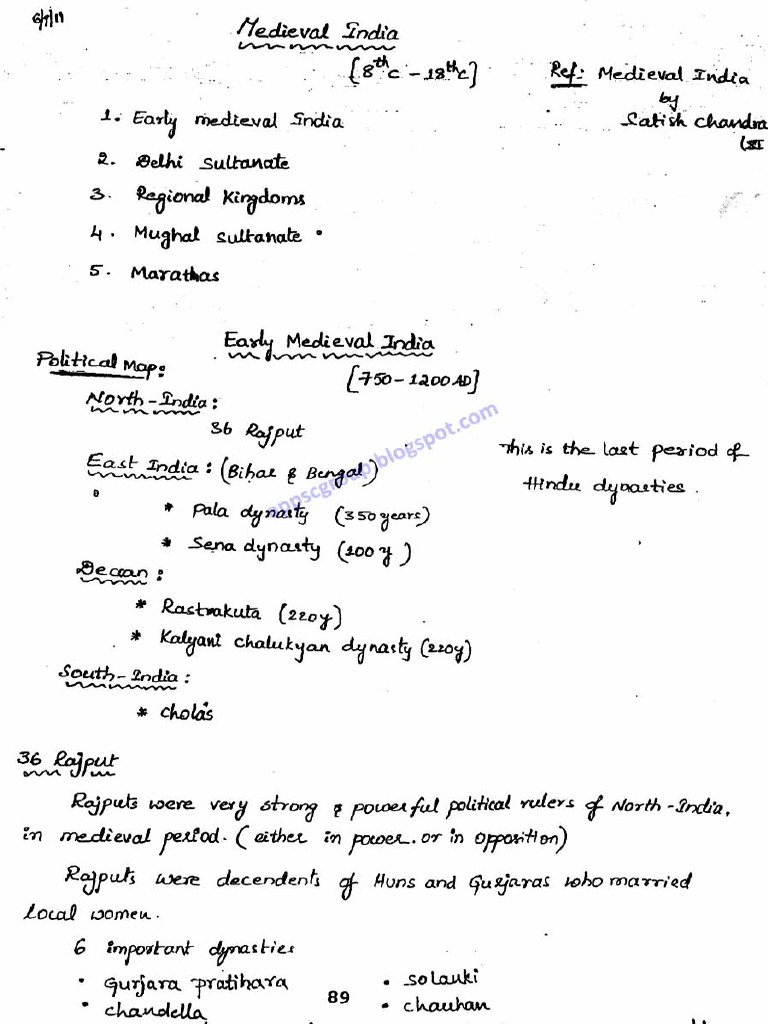 6/7/11
Medieval India
[8th c - 18th c]
Ref: Medieval India
by
Satish Chandra
(XI
1. Early medieval India
2. Delhi Sultanate
3. Regional Kingdoms
4. Mughal Sultanate
5. Marathas
Early Medieval India
[750-1200 AD]
Political Map:
North-India:
36 Rajput
This is the last period of
Hindu dynasties.
East India: (Bihar & Bengal)
* Pala dynasty (350 years)
* Sena dynasty (100 y)
Deccan:
* Rastrakuta (220y)
* Kalyani Chalukyan dynasty (220y)
South-India:
* Cholas
appscgroup.blogspot.com
36 Rajput
Rajputs were very strong & powerful political rulers of North-India,
in medieval period. (either in power. or in opposition)
Rajputs were decendents of Huns and Gurjaras who married
local women.
6 important dynasties
• Gurjara pratihara
• solanki
• chandella
• chauhan
89